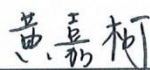 黄嘉柯